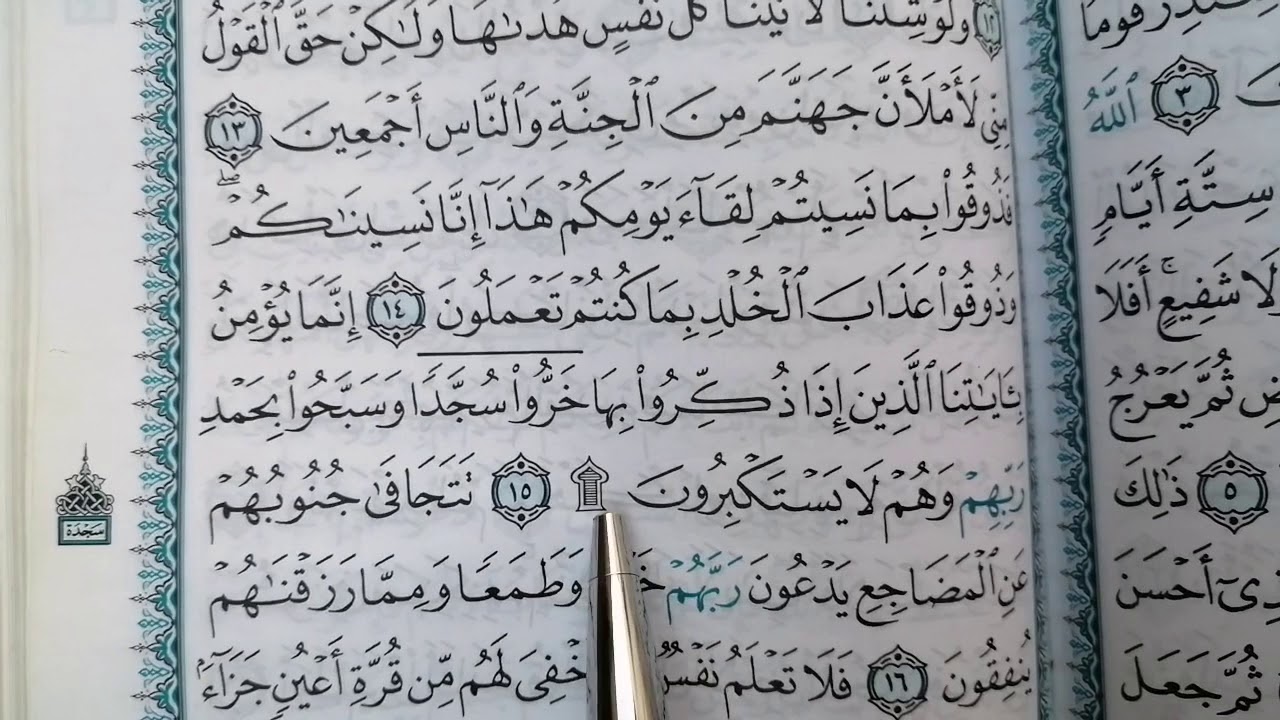 وَلَوْ شِئْنَا لَءَاتَيْنَا كُلَّ نَفْسٍ هُدَىٰهَا وَلَٰكِنْ حَقَّ ٱلْقَوْلُ
مِنِّى لَأَمْلَأَنَّ جَهَنَّمَ مِنَ ٱلْجِنَّةِ وَٱلنَّاسِ أَجْمَعِينَ ١٣
فَذُوقُوا۟ بِمَا نَسِيتُمْ لِقَآءَ يَوْمِكُمْ هَٰذَآ إِنَّا نَسِينَٰكُمْ ۖ
وَذُوقُوا۟ عَذَابَ ٱلْخُلْدِ بِمَا كُنتُمْ تَعْمَلُونَ ١٤ إِنَّمَا يُؤْمِنُ
بِـَٔايَٰتِنَا ٱلَّذِينَ إِذَا ذُكِّرُوا۟ بِهَا خَرُّوا۟ سُجَّدًا وَسَبَّحُوا۟ بِحَمْدِ
رَبِّهِمْ وَهُمْ لَا يَسْتَكْبِرُونَ ۩ ١٥ تَتَجَافَىٰ جُنُوبُهُمْ
عَنِ ٱلْمَضَاجِعِ يَدْعُونَ رَبَّهُمْ وَطَمَعًا وَمِمَّا رَزَقْنَٰهُمْ
يُنفِقُونَ ١٦ فَلَا تَعْلَمُ نَفْسٌ أُخْفِىَ لَهُم مِّن قُرَّةِ أَعْيُنٍ جَزَآءًۢ
سَجْدَة
قَوْمًا
٣ ٱللَّهُ
سِتَّةِ أَيَّامٍ
لَا شَفِيعٍ ۚ أَفَلَا
ثُمَّ يَعْرُجُ
٥ ذَٰلِكَ
أَحْسَنَ
ثُمَّ جَعَلَ